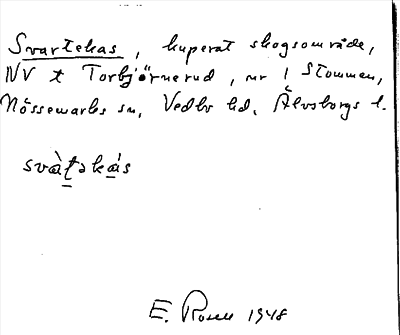 Svartekas, kuperat skogsområde,
NV t Torbjörnerud, nr 1 Stommen,
Nössemarks sn, Vedbo hd, Älvsborgs l.
svàt̲əka̲´s
E. Rosell 1948